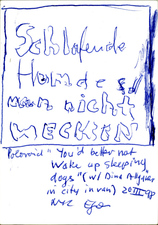 Schlafende
Hunde soll
man nicht
WECKEN
Polaroid "You'd better not
wake up sleeping
dogs" (w/
in city in van) 20 98
NYC